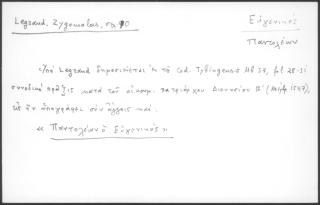 Legrand, Zygomalas, σ. 90
Εὐγενικός
Παντολέων
Ἀπὸ Legrand δημοσιεύεται ἐκ τοῦ Cod. Tybingensis Mb 37, fol 28-31
συνοδικὴ πρᾶξις κατὰ τοῦ οἰκουμ. πατριάρχου Διονυσίου Β΄ (1547),
ὑπογράφει σὺν ἄλλοις καὶ:
« Παντολέων ὁ Εὐγενικός »